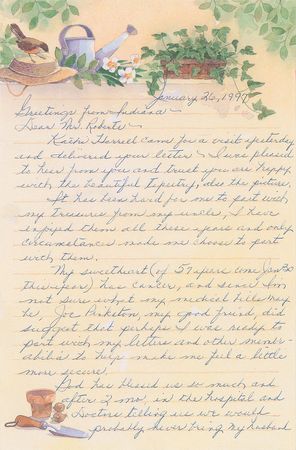 January 26, 1997
Greetings from Indiana
Dear Mr. Roberts
Kathi Harrell came for a visit yesterday
and delivered your letter - I was pleased
to hear from you and trust you are happy
with the beautiful tapestry, also the picture.
It has been hard for me to part with
my treasures from my uncle, I have
enjoyed them all these years and only
circumstances made me choose to part
with them.
My sweetheart (of 57 years come Jan 30
this year) has cancer, and since I'm
not sure what my medical bills may
be, Joe Pinkston my good friend, did
suggest that perhaps I was ready to
part with my letters and other memor-
abilia to help make me feel a little
more secure.
God has blessed us so much and
after 2 mo. in the hospital and
Doctors telling us we would
probably never bring my husband